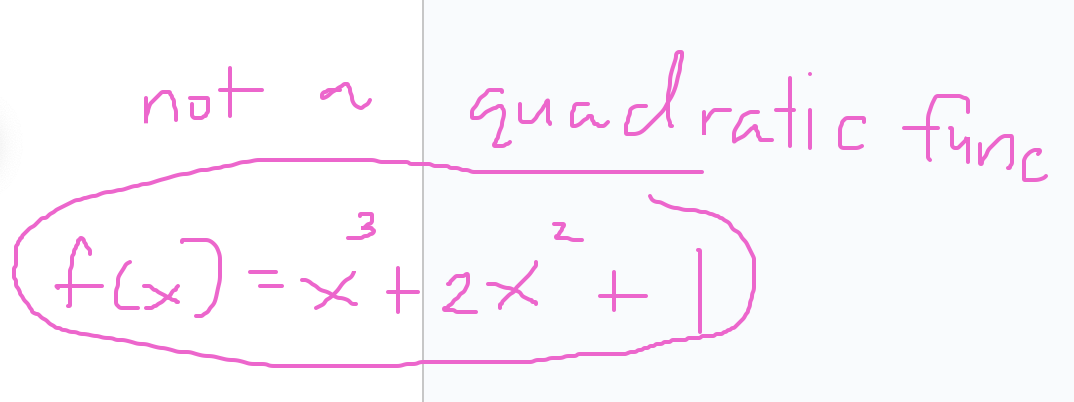 not a quadratic func
f(x) = x³ + 2x² + 1